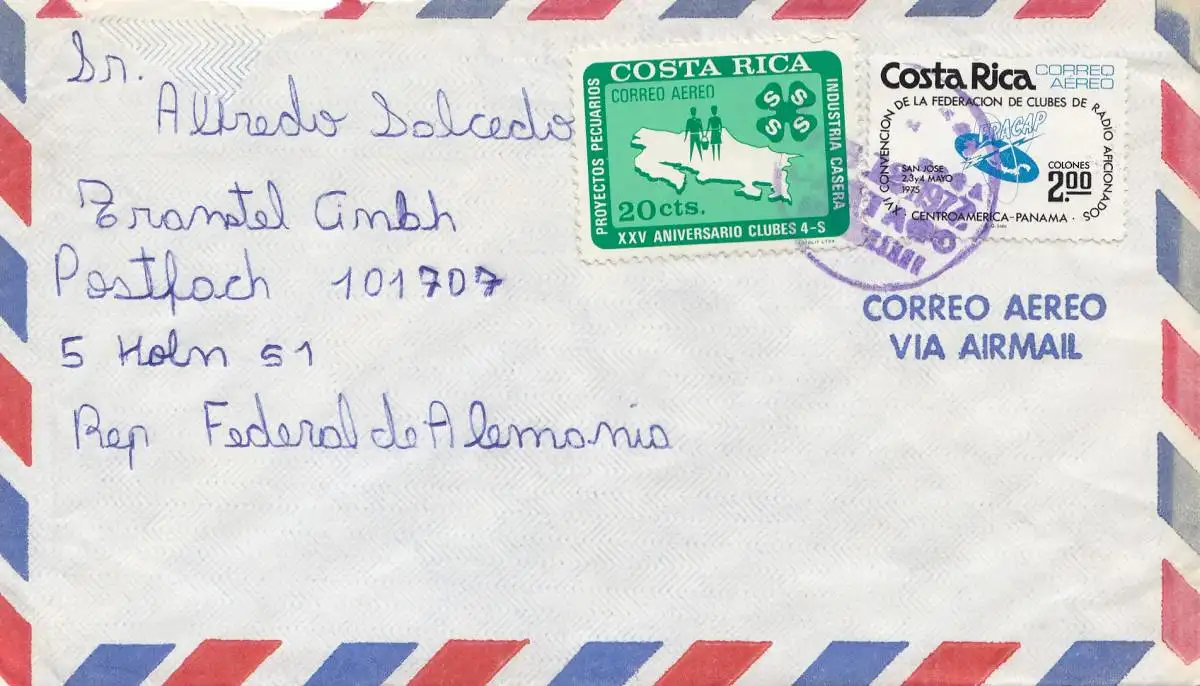 Sr.
Alfredo Salcedo
Transtel Gmbh
Postfach 101707
5 Koln 51
Rep Federal de Alemania
COSTA RICA
CORREO AEREO
PROYECTOS PECUARIOS
INDUSTRIA CASERA
S S
S S
20 cts.
XXV ANIVERSARIO CLUBES 4-S
Costa Rica CORREO AEREO
XVI CONVENCION DE LA FEDERACION DE CLUBES DE RADIO AFICIONADOS
FRACAP
SAN JOSE
2,3 y 4 MAYO
1975
COLONES
2.00
· CENTROAMERICA-PANAMA ·
CORREO AEREO
VIA AIRMAIL